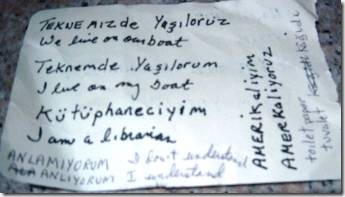 TEKNEMIZde YaşıLORUZ
We live on our boat
Teknemde Yaşılorum
I live on my boat
Kütüphaneciyim
I am a librarian
ANLAMIYORUM I don't understand
ANLIYORUM I understand
AMERİKaliyim
AMERKaliyoruz
toilet paper
tuvalet Kağıdı